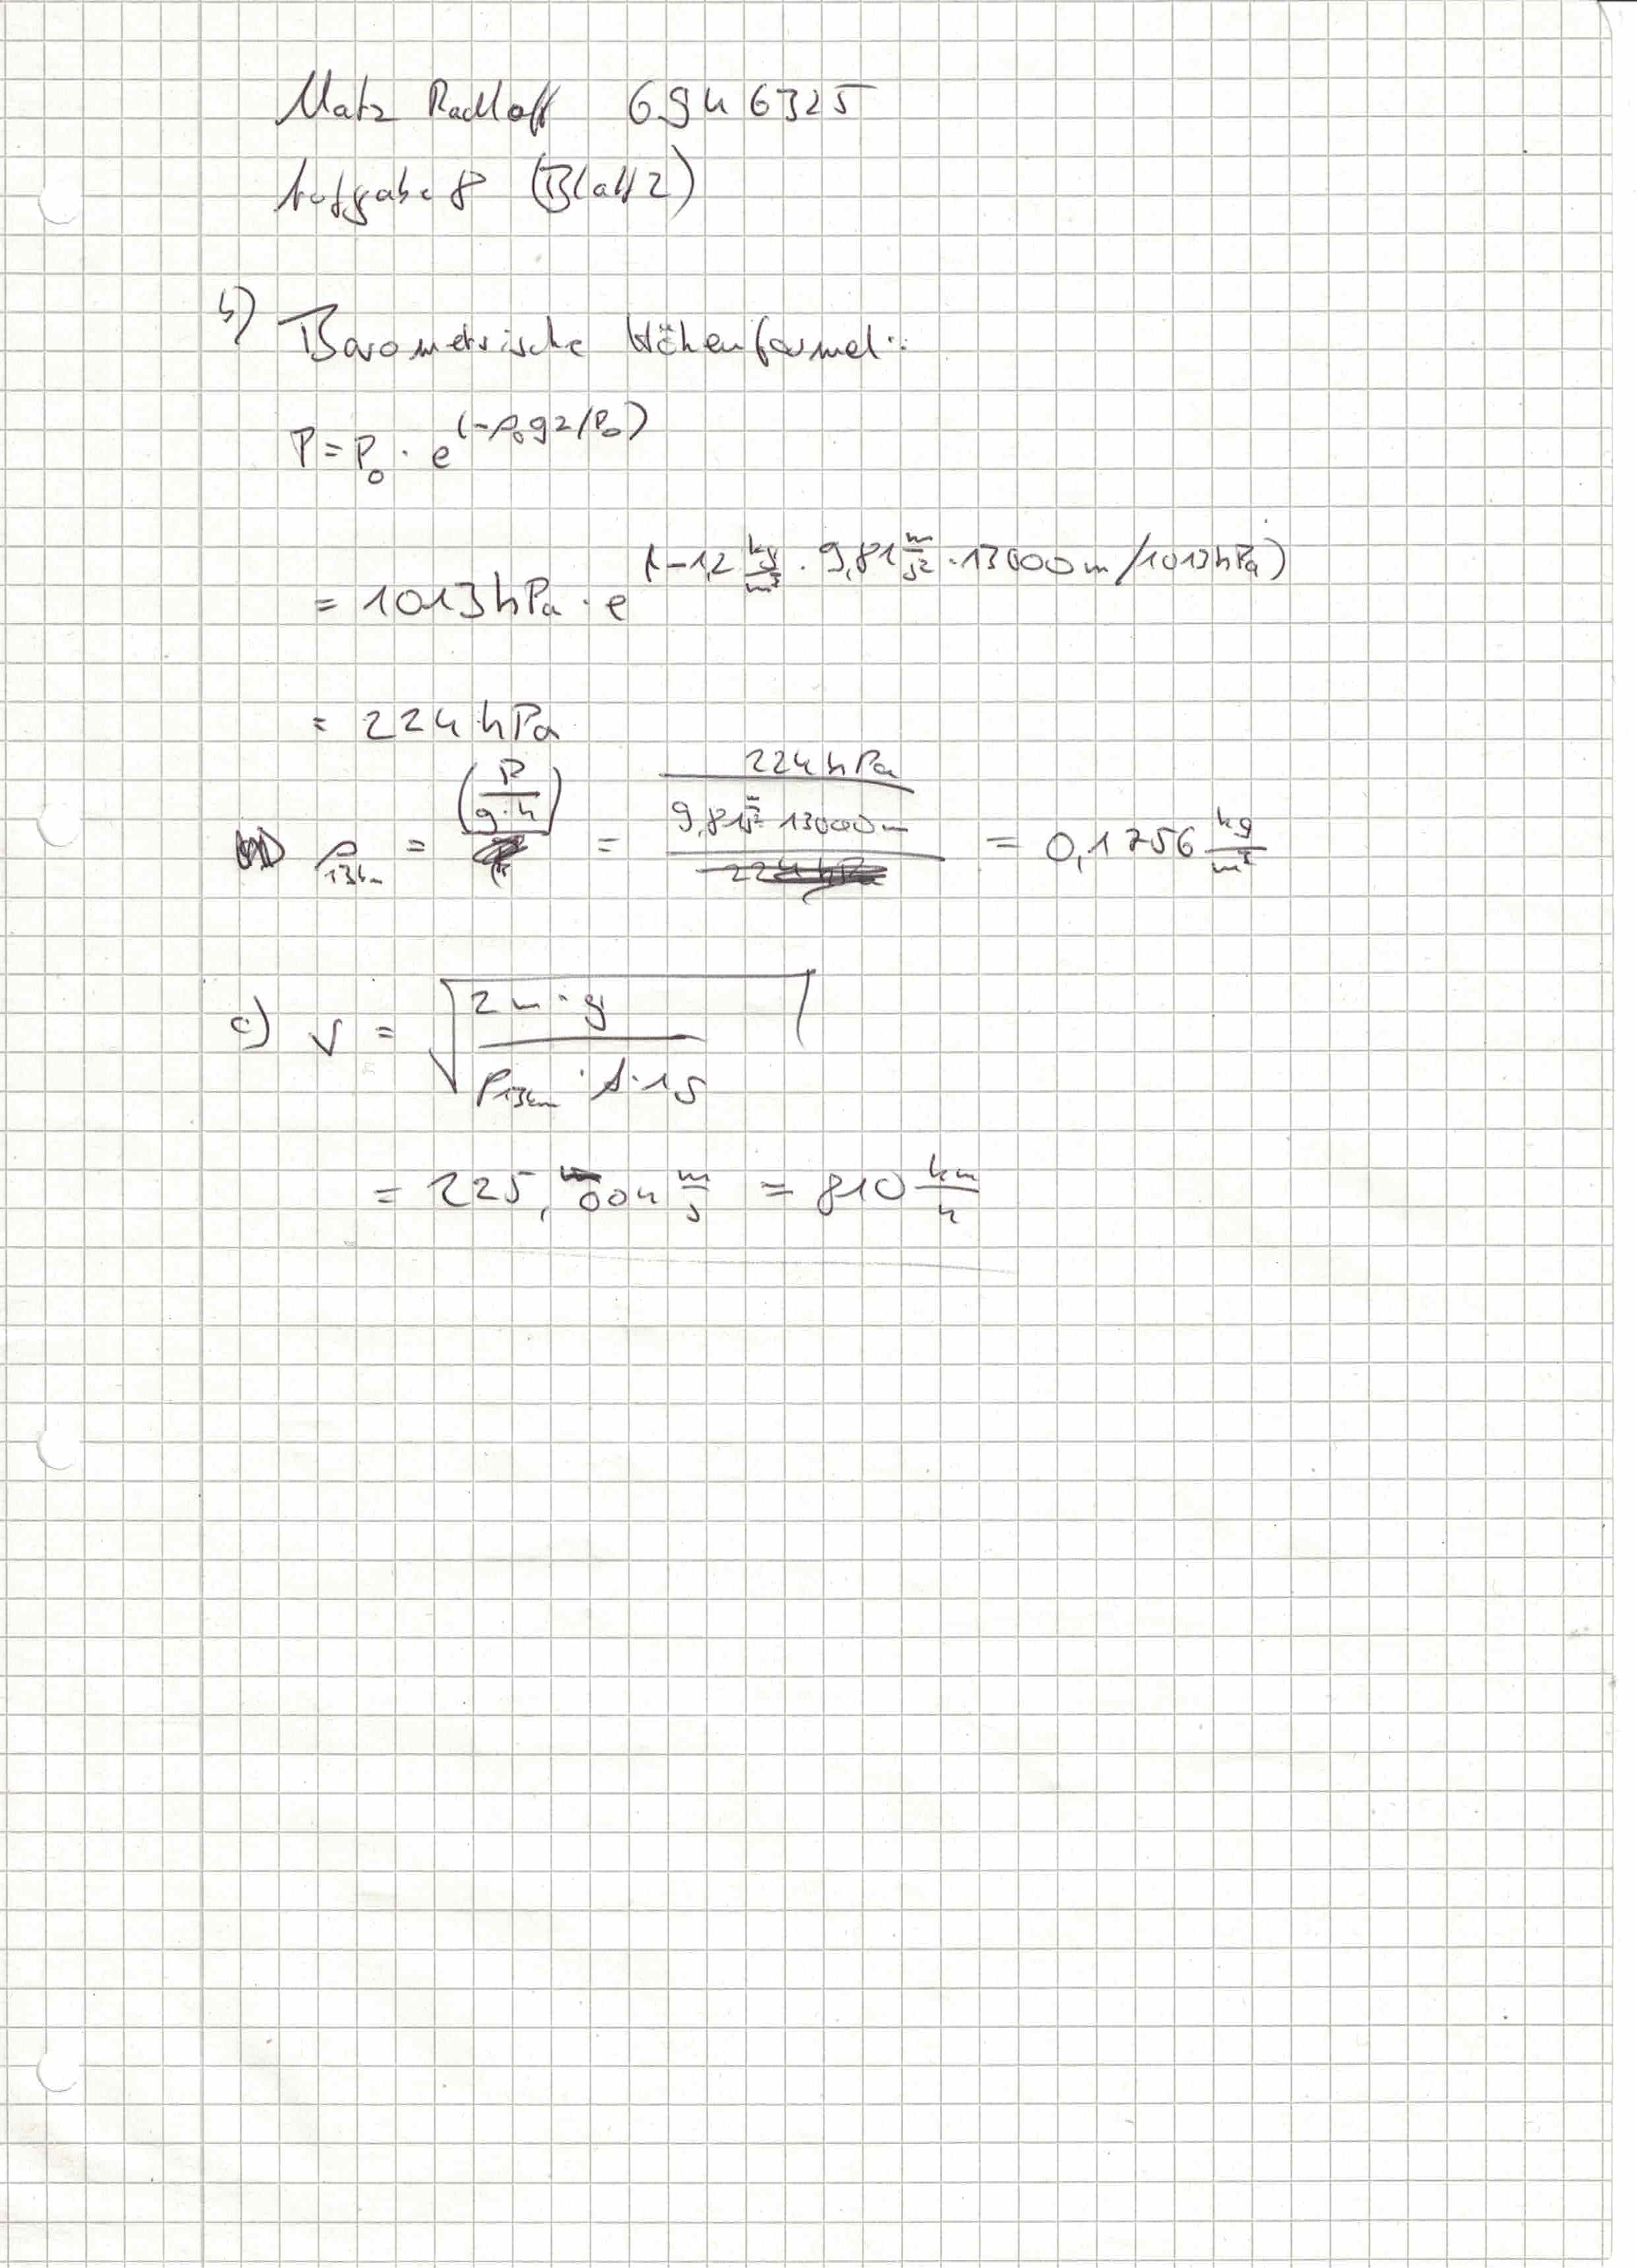 Matz Radloff 6946325
Aufgabe 8 (Blatt 2)
b) Barometrische Höhenformel:
P = P₀ · e^(-ρ₀gz/P₀)
= 1013 hPa · e^(-1,2 kg/m³ · 9,81 m/s² · 13000 m / 1013 hPa)
= 224 hPa
ρ₁₃ₖₘ = (P/(g·h)) = 224 hPa / (9,81 m/s² · 13000 m) = 0,1756 kg/m³
c) v = √(2m·g / (ρ₁₃ₖₘ · A · 1,5))
= 225,004 m/s = 810 km/h